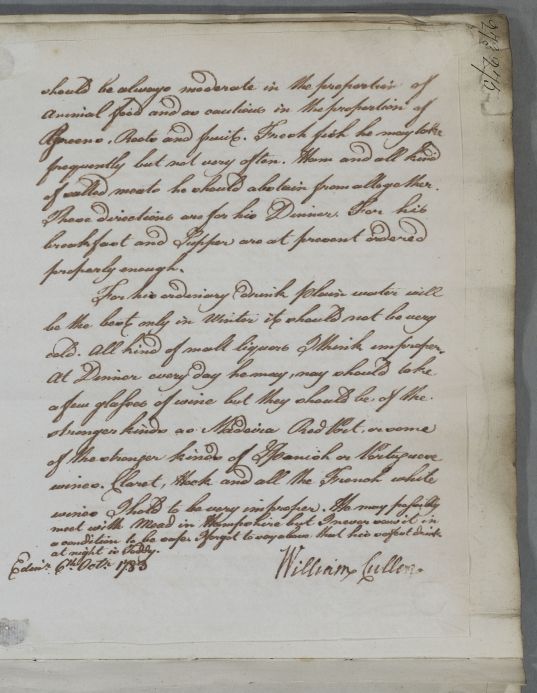 should be always moderate in the proportion of
Animal food and as cautious in the proportion of
Greens, Roots and fruit. Fresh fish he may take
frequently but not very often. Ham and all kind
of salted meats he should abstain from altogether.
These directions are for his Dinner. For his
breakfast and Supper are at present ordered
properly enough.
For his ordinary drink Plain water will
be the best only in Winter it should not be very
cold. All kind of malt liquors I think improper.
At Dinner every day he may, nay should take
a few glasses of wine but they should be of the
stronger kinds as Madeira Red Port. or some
of the stronger kinds of Spanish or Portuguese
wines. Claret, Hock and all the French white
wines I hold to be very improper. He may possibly
meet with Mead in Hampshire but I never saw it in
a condition to be safe. I forgot to say above that his safest drink
at night is Toddy.
Edinr. 6th. Octr. 1783
William Cullen.